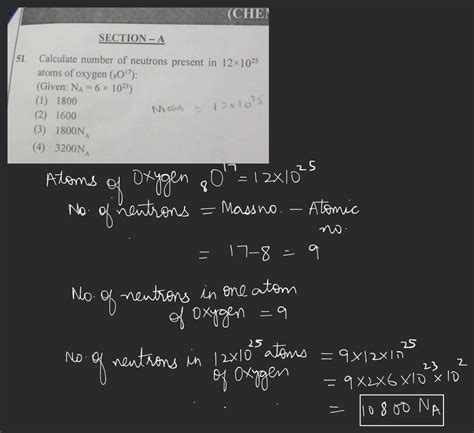 (CHE
SECTION – A
51. Calculate number of neutrons present in 12×10²⁵
atoms of oxygen (₈O¹⁷):
(Given: N_A = 6 × 10²³)
(1) 1800
(2) 1600
(3) 1800N_A
(4) 3200N_A
= 12×10²⁵
Atoms of Oxygen ₈O¹⁷ = 12×10²⁵
No. of neutrons = Mass no. – Atomic
no.
= 17–8 = 9
No. of neutrons in one atom
of Oxygen = 9
No. of neutrons in 12×10²⁵ atoms
of Oxygen
= 9×12×10²⁵
= 9×2×6×10²³×10²
= 10800 N_A